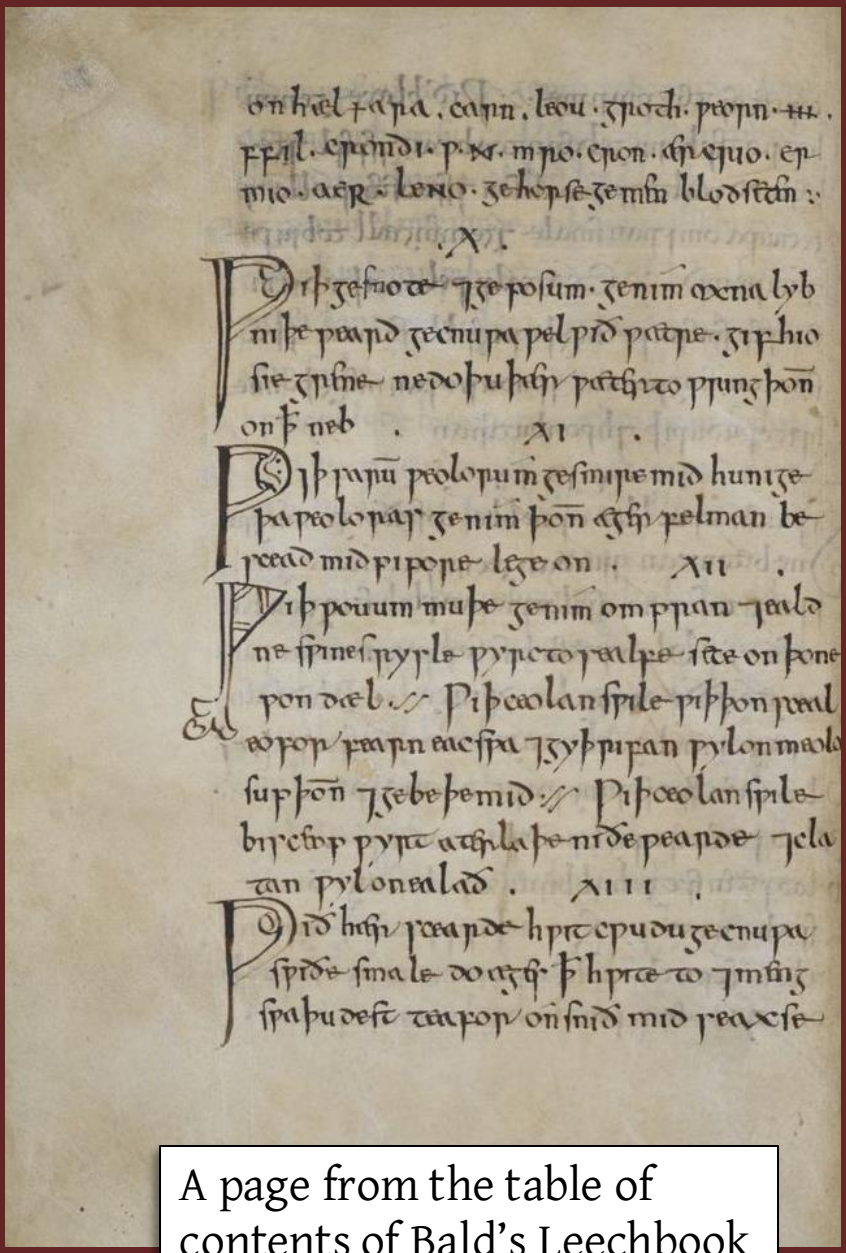 ffil . crondi . p . N . mro . cron . ærcrio . er
mio . aeR . leNo . ge horse ge men blod seten :
. X .
Ƿiþ gesnote ⁊ geposum . genim oxna lyb
niþe ƿeard gecnuƿa ƿel ƿið ƿætre . gif hio
sie grene ne do þu þær ƿæter to ƿring þoñ
on ꝥ neb . XI .
Ƿiþ sarū ƿeolorum gesmire mid hunige
þa ƿeoloras genim þoñ æges felman be
scead mid pipore lege on . XII .
Ƿiþ ƿouum muþe genim ompran ⁊ eald
ne sƿines rysle ƿyrc to sealfe sete on þone
ƿon dæl . Ƿiþ ceolan sƿile ƿiþ þon sceal
eofor fearn eac sƿa ⁊ gyþrifan ƿyl on meolc
sup þoñ ⁊ gebeþe mid . Ƿiþ ceolan sƿile
bisceop ƿyrt atterlaþe niðe ƿearde ⁊ cla
tan ƿyl on ealað . XIII .
Ƿið hær scearde hƿit cƿudu gecnuƿa
sƿiðe smale do æges ꝥ hƿite to ⁊ meng
sƿa þu dest teafor on snið mid seaxse
A page from the table of
contents of Bald’s Leechbook